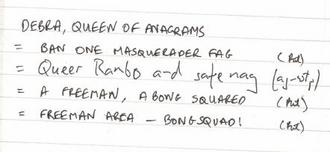 DEBRA, QUEEN OF ANAGRAMS
= BAN ONE MASQUERADER FAG
= Queer Rambo and safe nag
= A FREEMAN, A BONG SQUARED
= FREEMAN AREA - BONGSQUAD!